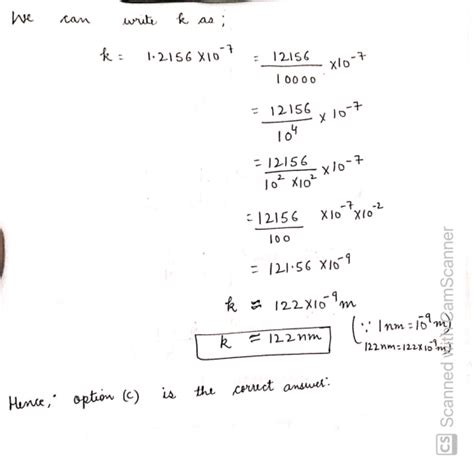 We can write k as ;
k = 1.2156 × 10⁻⁷ = 12156/10000 × 10⁻⁷
= 12156/10⁴ × 10⁻⁷
= 12156/10² × 10² × 10⁻⁷
= 12156/100 × 10⁻⁷ × 10⁻²
= 121.56 × 10⁻⁹
k ≈ 122 × 10⁻⁹ m
k ≈ 122 nm (∵ 1 nm = 10⁻⁹ m)
122 nm = 122 × 10⁻⁹ m)
Hence, option (c) is the correct answer.
CS Scanned with CamScanner